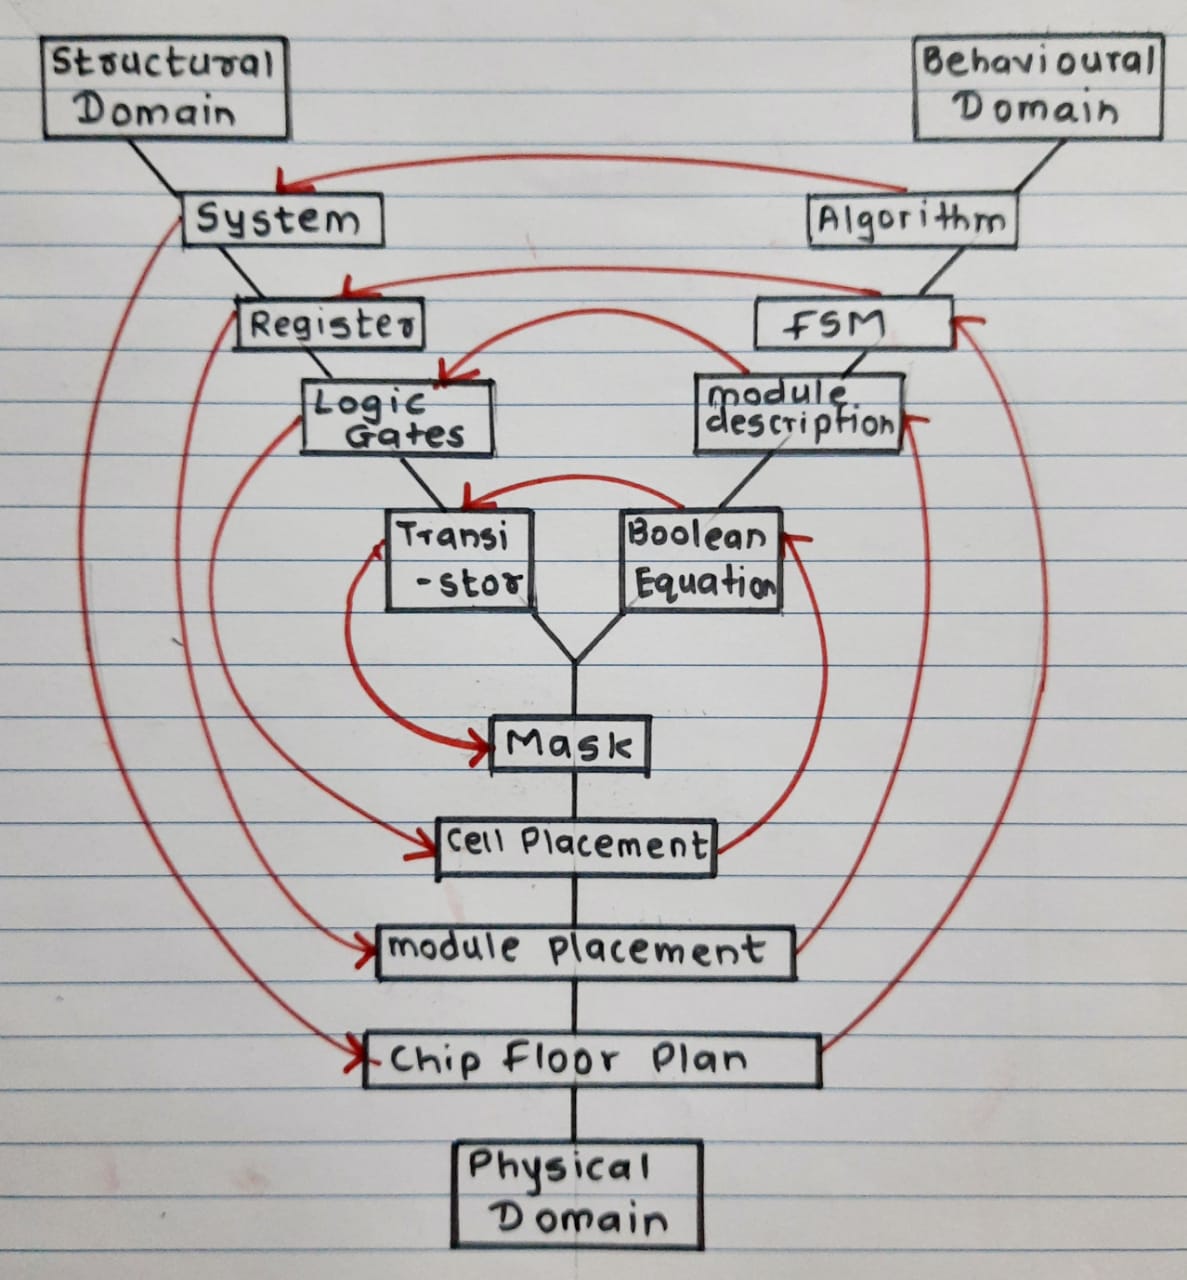 Structural
Domain
Behavioural
Domain
System
Algorithm
Register
FSM
Logic
Gates
module
description
Transi
-stor
Boolean
Equation
Mask
Cell Placement
module placement
Chip Floor Plan
Physical
Domain